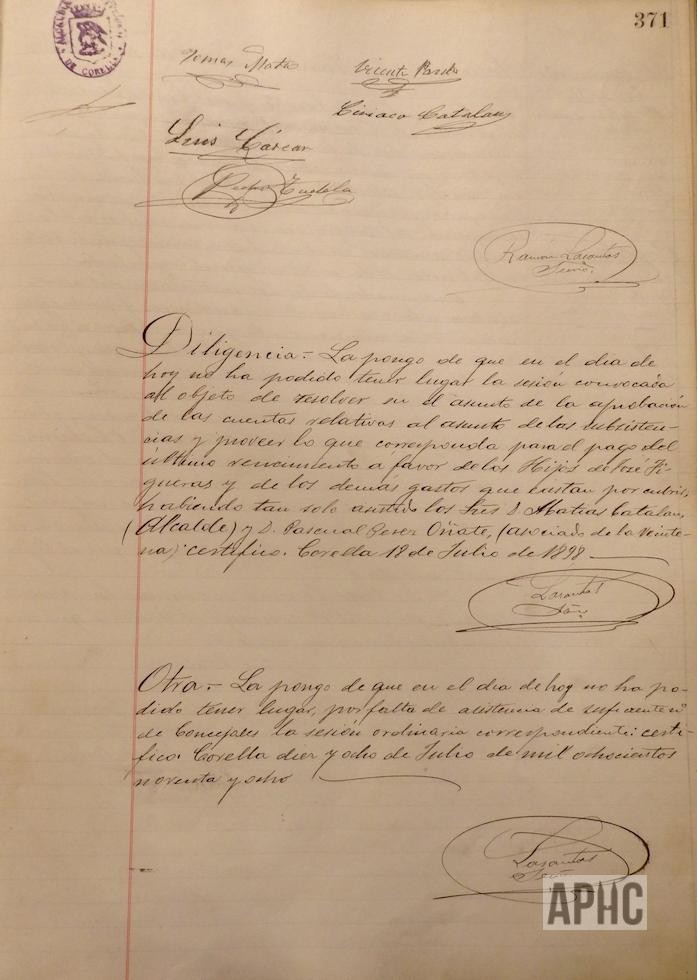 371
ALCALDIA
DE CORELLA
Tomas Mata
Vicente
Ciriaco Catalan
Luis
Pedro Tudela
Ramón Lasantas
Srio.
Diligencia.- La pongo de que en el dia de
hoy no ha podido tener lugar la sesión convocada
al objeto de resolver en el asunto de la aprobación
de las cuentas relativas al asunto de las subsisten-
cias y proveer lo que corresponda para el pago del
último vencimiento a favor de los Hijos de José Fi-
gueras y de los demás gastos que existan por cubrir,
habiendo tan solo asistido los Sres D. Matias Catalan,
(Alcalde) y D. Pascual Perez Oñate, (asociado de la Veinte-
na): certifico. Corella 18 de Julio de 1898.
Lasantas
Srio.
Otra.- La pongo de que en el dia de hoy no ha po-
dido tener lugar, por falta de asistencia de suficiente nº
de Concejales la sesión ordinaria correspondiente: certi-
fico. Corella diez y ocho de Julio de mil ochocientos
noventa y ocho
Lasantas
Srio.
APHC